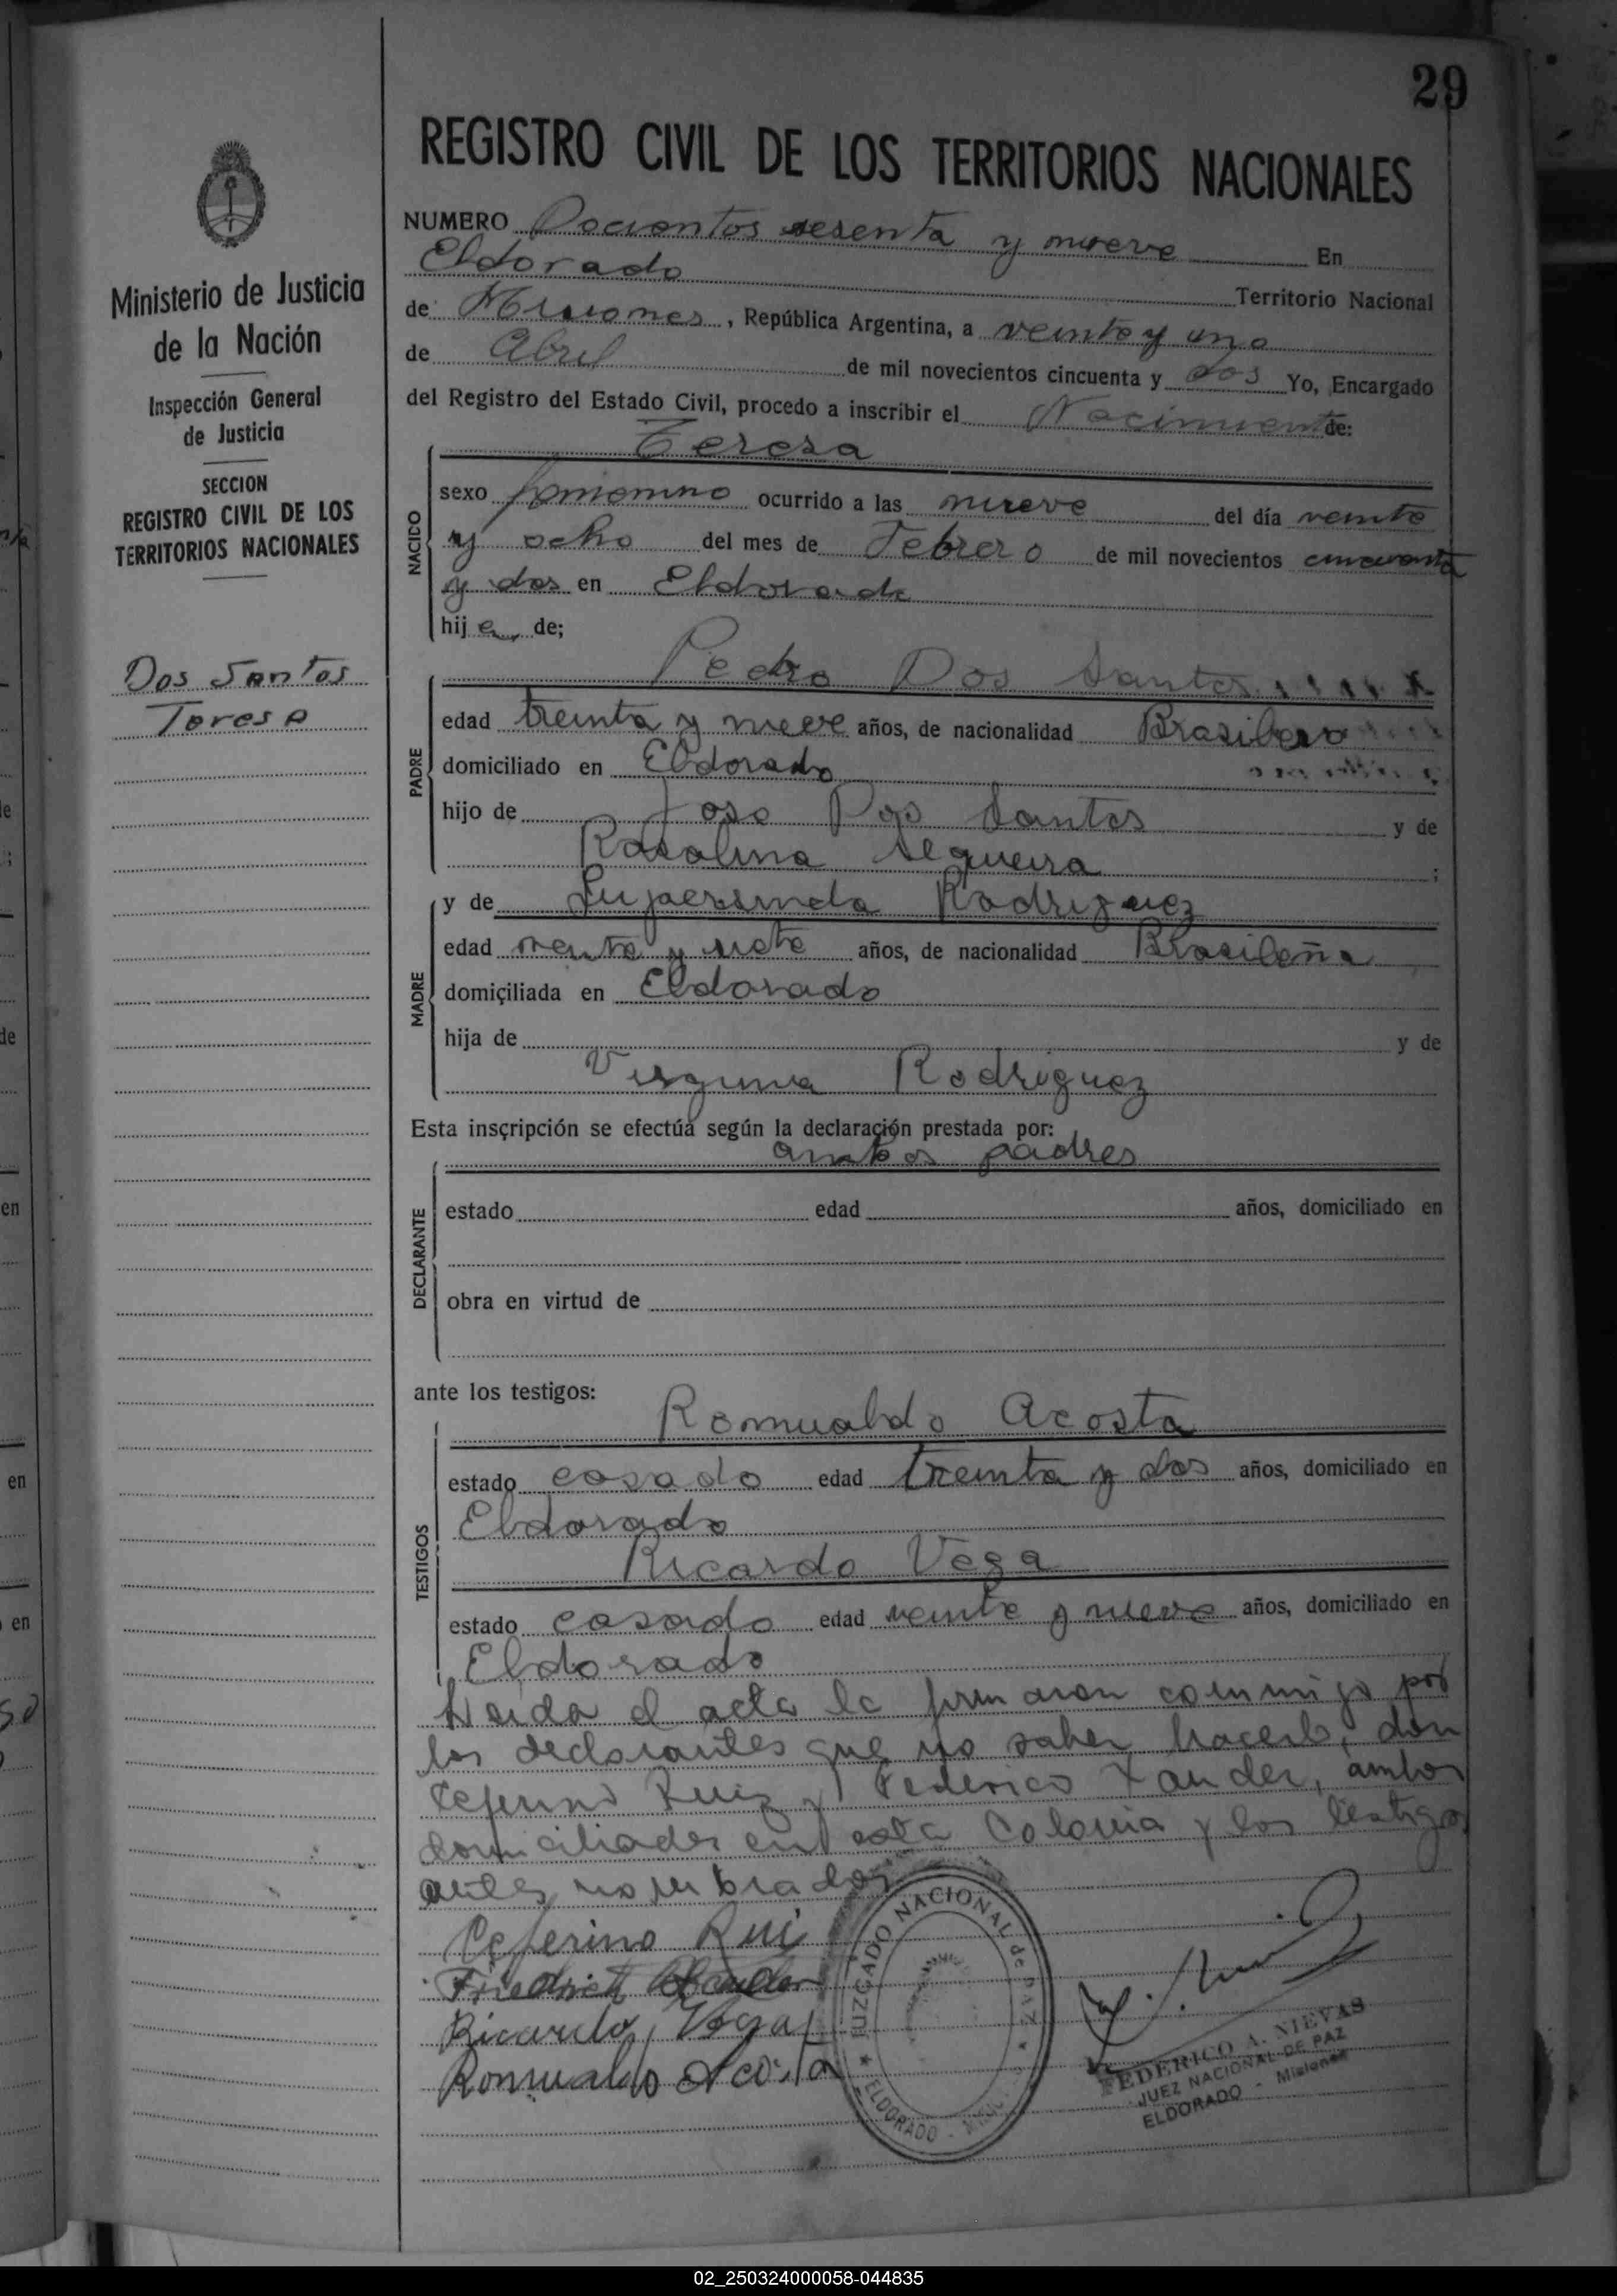 29
REGISTRO CIVIL DE LOS TERRITORIOS NACIONALES
Ministerio de Justicia
de la Nación
Inspección General
de Justicia
SECCION
REGISTRO CIVIL DE LOS
TERRITORIOS NACIONALES
Dos Santos
Teresa
NUMERO Docientos sesenta y nueve En
Eldorado Territorio Nacional
de Misiones, República Argentina, a veinte y uno
de Abril de mil novecientos cincuenta y dos Yo, Encargado
del Registro del Estado Civil, procedo a inscribir el Nacimiento de:
NACIDO
Teresa
sexo femenino ocurrido a las nueve del día veinte
y ocho del mes de Febrero de mil novecientos cincuenta
y dos en Eldorado
hija de;
PADRE
Pedro Dos Santos
edad treinta y nueve años, de nacionalidad Brasilero
domiciliado en Eldorado ;
hijo de Jose Dos Santos y de
Rosalina Sequeira ;
MADRE
y de Rodriguez
edad y siete años, de nacionalidad Brasileña
domiciliada en Eldorado
hija de y de
Virginia Rodriguez
Esta inscripción se efectúa según la declaración prestada por:
DECLARANTE
ambos padres
estado edad años, domiciliado en
obra en virtud de
ante los testigos:
TESTIGOS
Romualdo Acosta
estado casado edad treinta y dos años, domiciliado en
Eldorado
Ricardo Vega
estado casado edad veinte y nueve años, domiciliado en
Eldorado
Leida el acta la firmaron conmigo por
los declarantes que no saben hacerlo, don
Ceferino Ruiz y Federico Xander, ambos
domiciliados en esta Colonia y los testigos
antes nombrados
Ceferino Rui
Friedrich Xander
Ricardo Vega
Romualdo Acosta
JUZGADO NACIONAL de PAZ
ELDORADO - MISIONES
FEDERICO A. NIEVAS
JUEZ NACIONAL DE PAZ
ELDORADO - Misiones
02_250324000058-044835